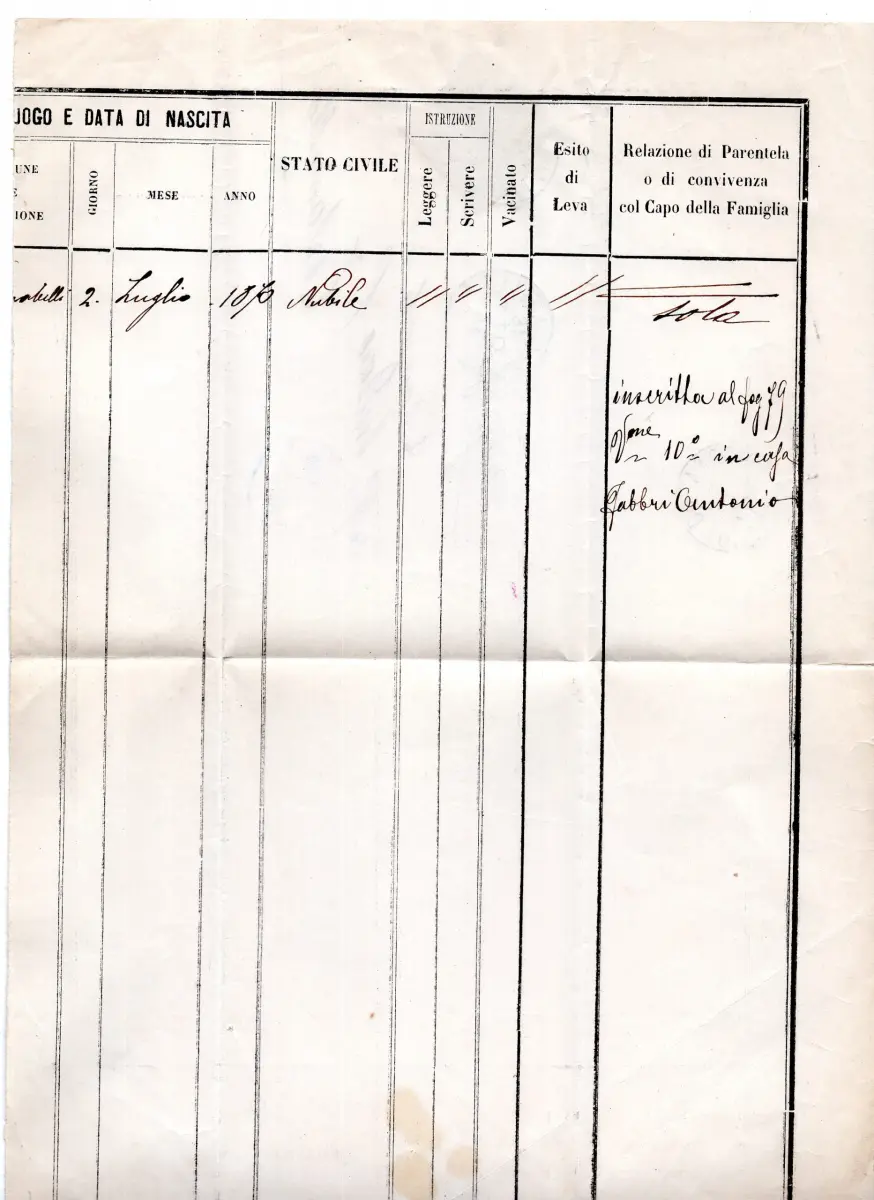 UOGO E DATA DI NASCITA
UNE
E
IONE
GIORNO
MESE
ANNO
STATO CIVILE
ISTRUZIONE
Leggere
Scrivere
Vacinato
Esito
di
Leva
Relazione di Parentela
o di convivenza
col Capo della Famiglia
2. Luglio Nubile // // // //
sola
inscritta al fog 79
10° in casa
Fabbri Antonio